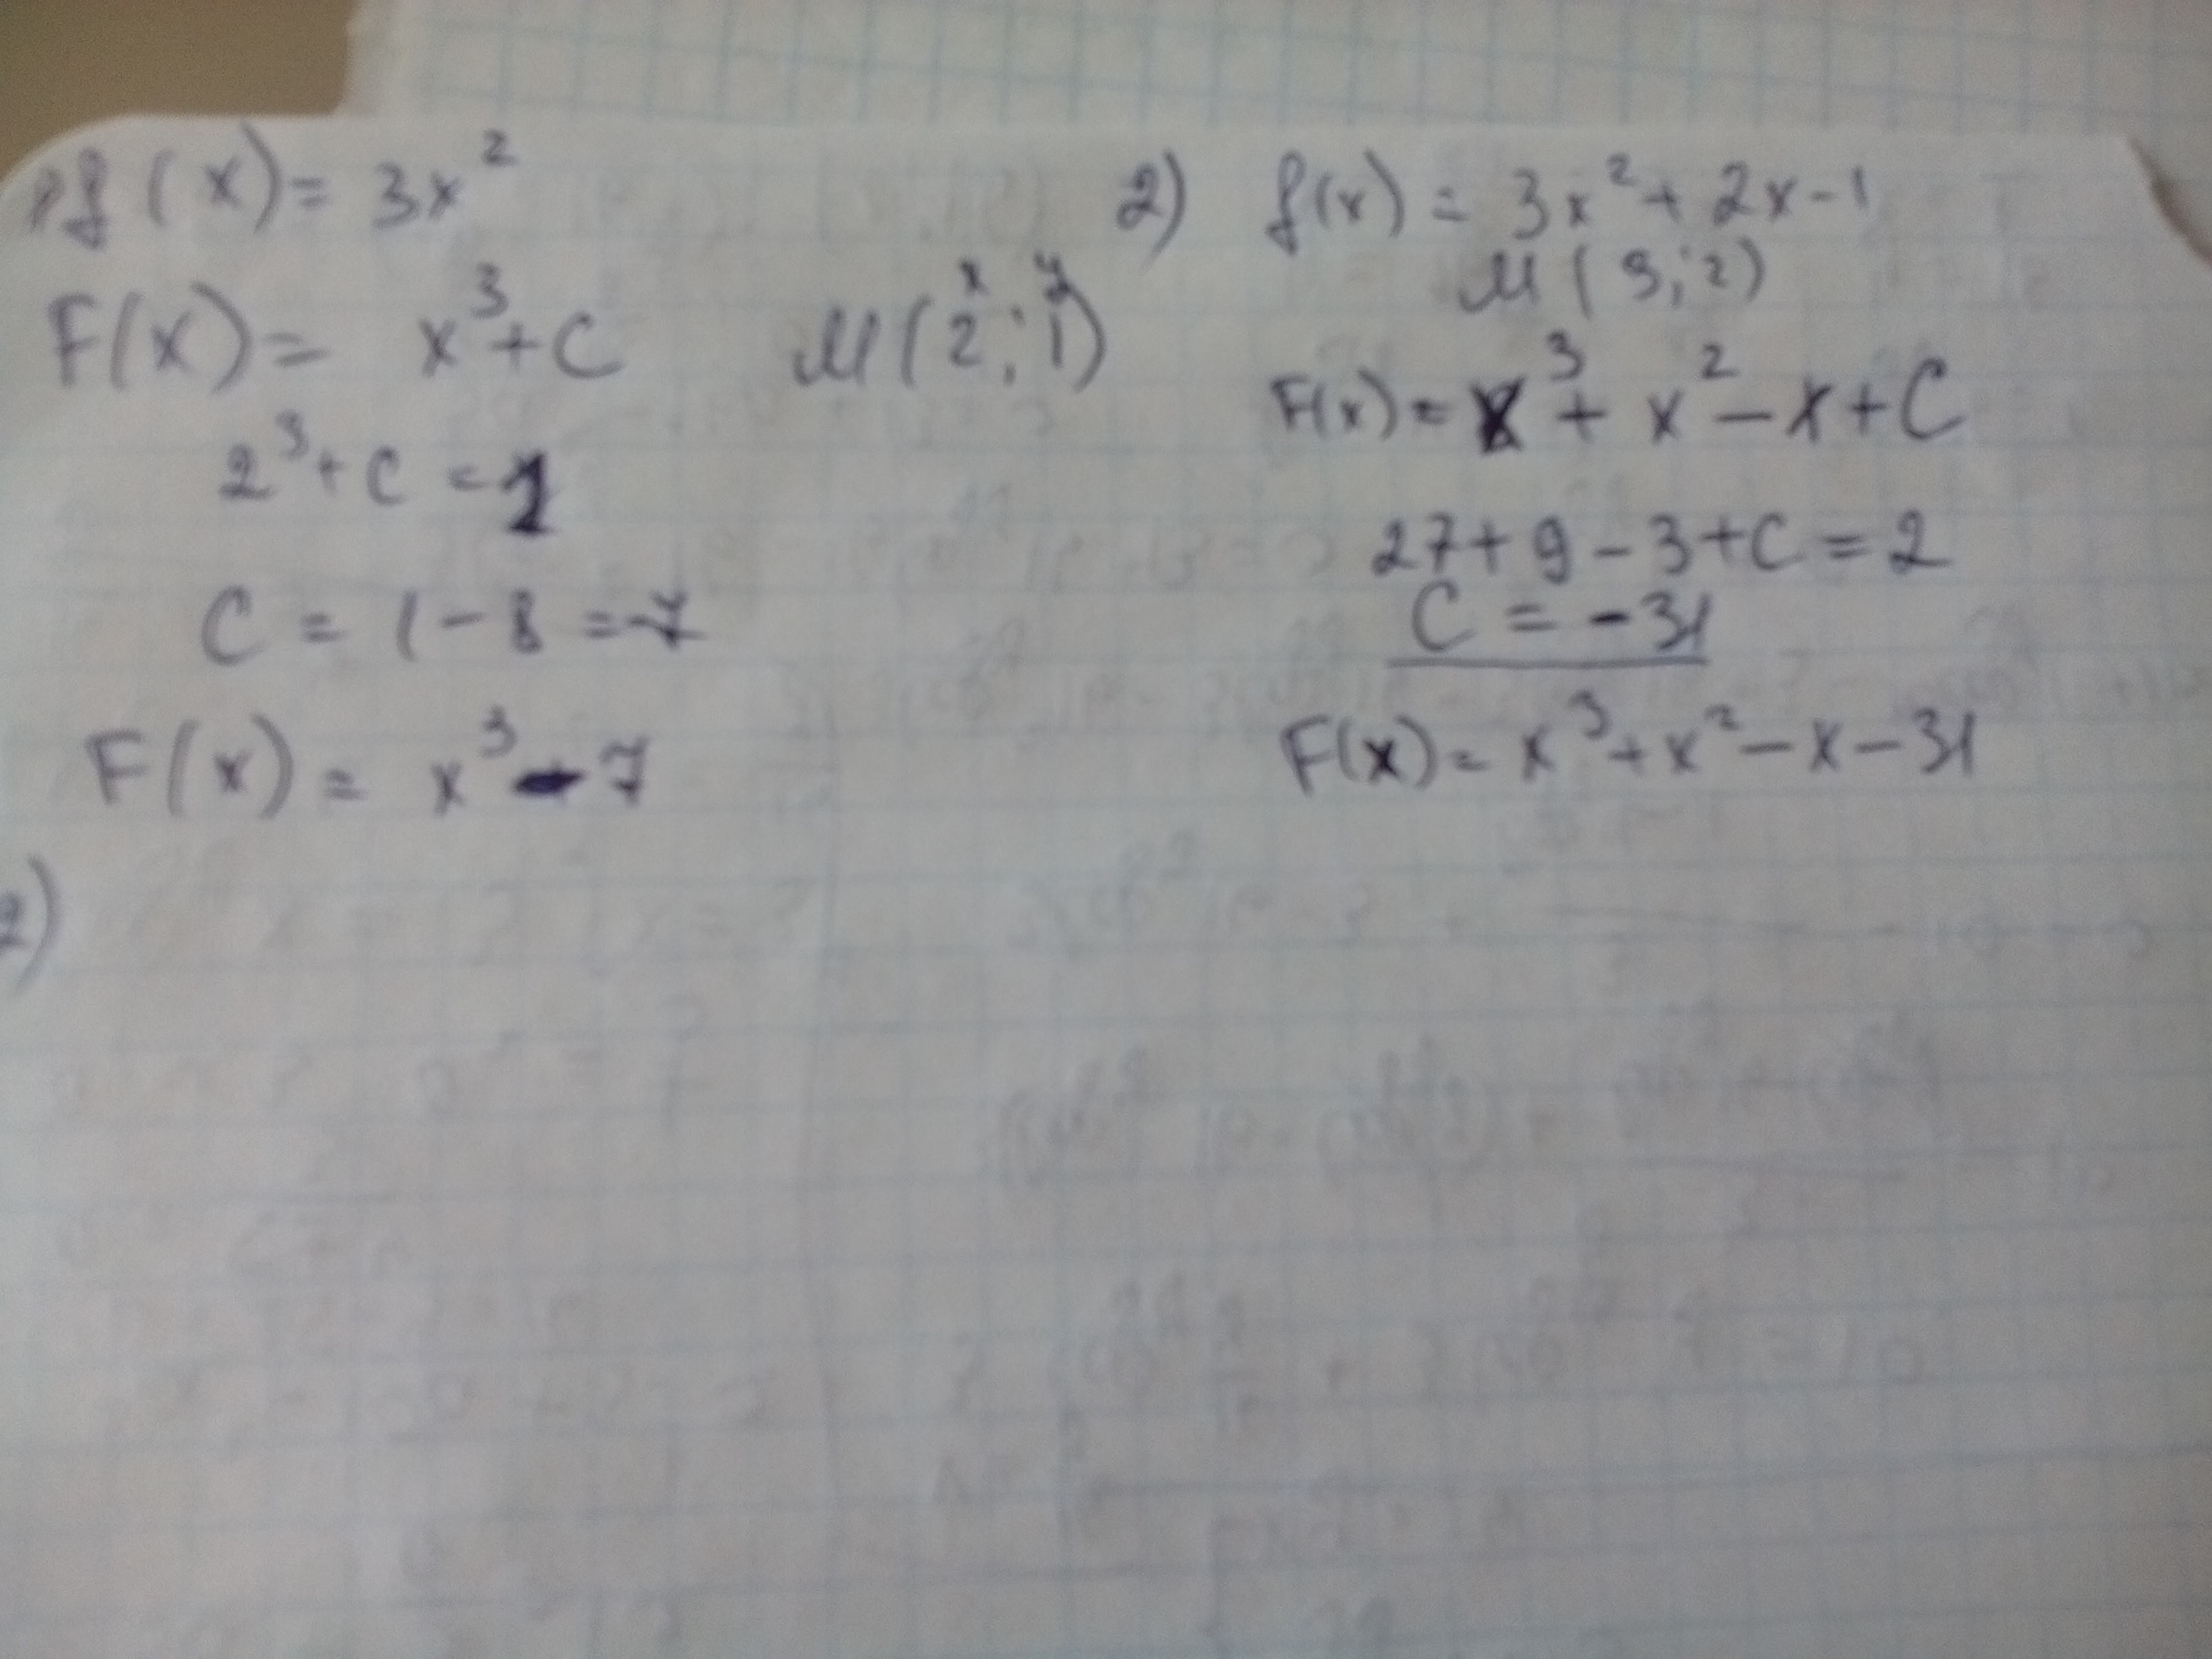 1) f(x) = 3x²
F(x) = x³ + C
x y
M(2; 1)
2³ + C = 1
C = 1 - 8 = -7
F(x) = x³ - 7
2)
2) f(x) = 3x² + 2x - 1
M(3; 2)
F(x) = x³ + x² - x + C
27 + 9 - 3 + C = 2
C = -31
F(x) = x³ + x² - x - 31